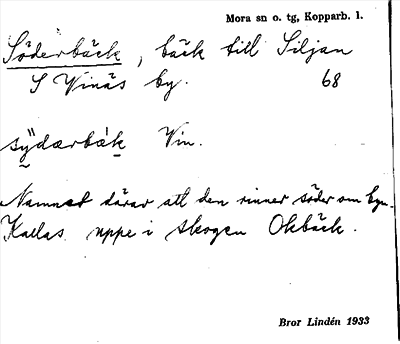 Mora sn o. tg, Kopparb. l.
Söderbäck, bäck till Siljan
S Vinäs by. 68
sÿdærbæk Vin.
Namnet därav att den rinner söder om byn.
Kallas uppe i skogen Okbäck.
Bror Lindén 1933